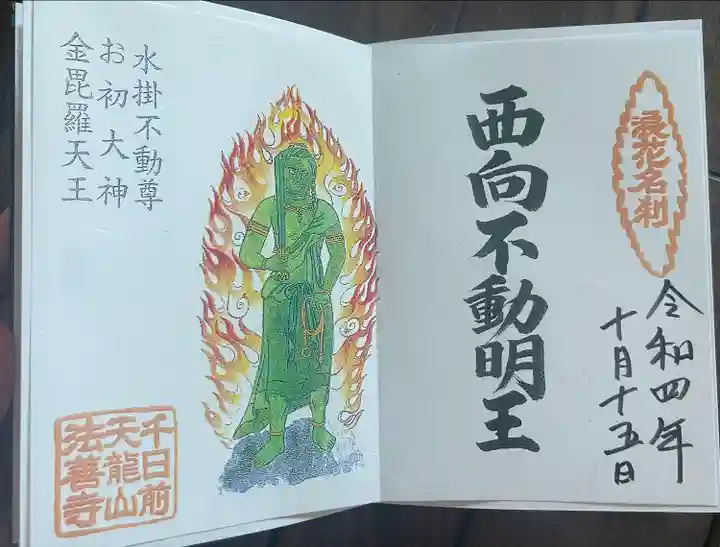 浪花名刹
令和四年
十月十五日
西向不動明王
水掛不動尊
お初大神
金毘羅天王
千日前
天龍山
法善寺